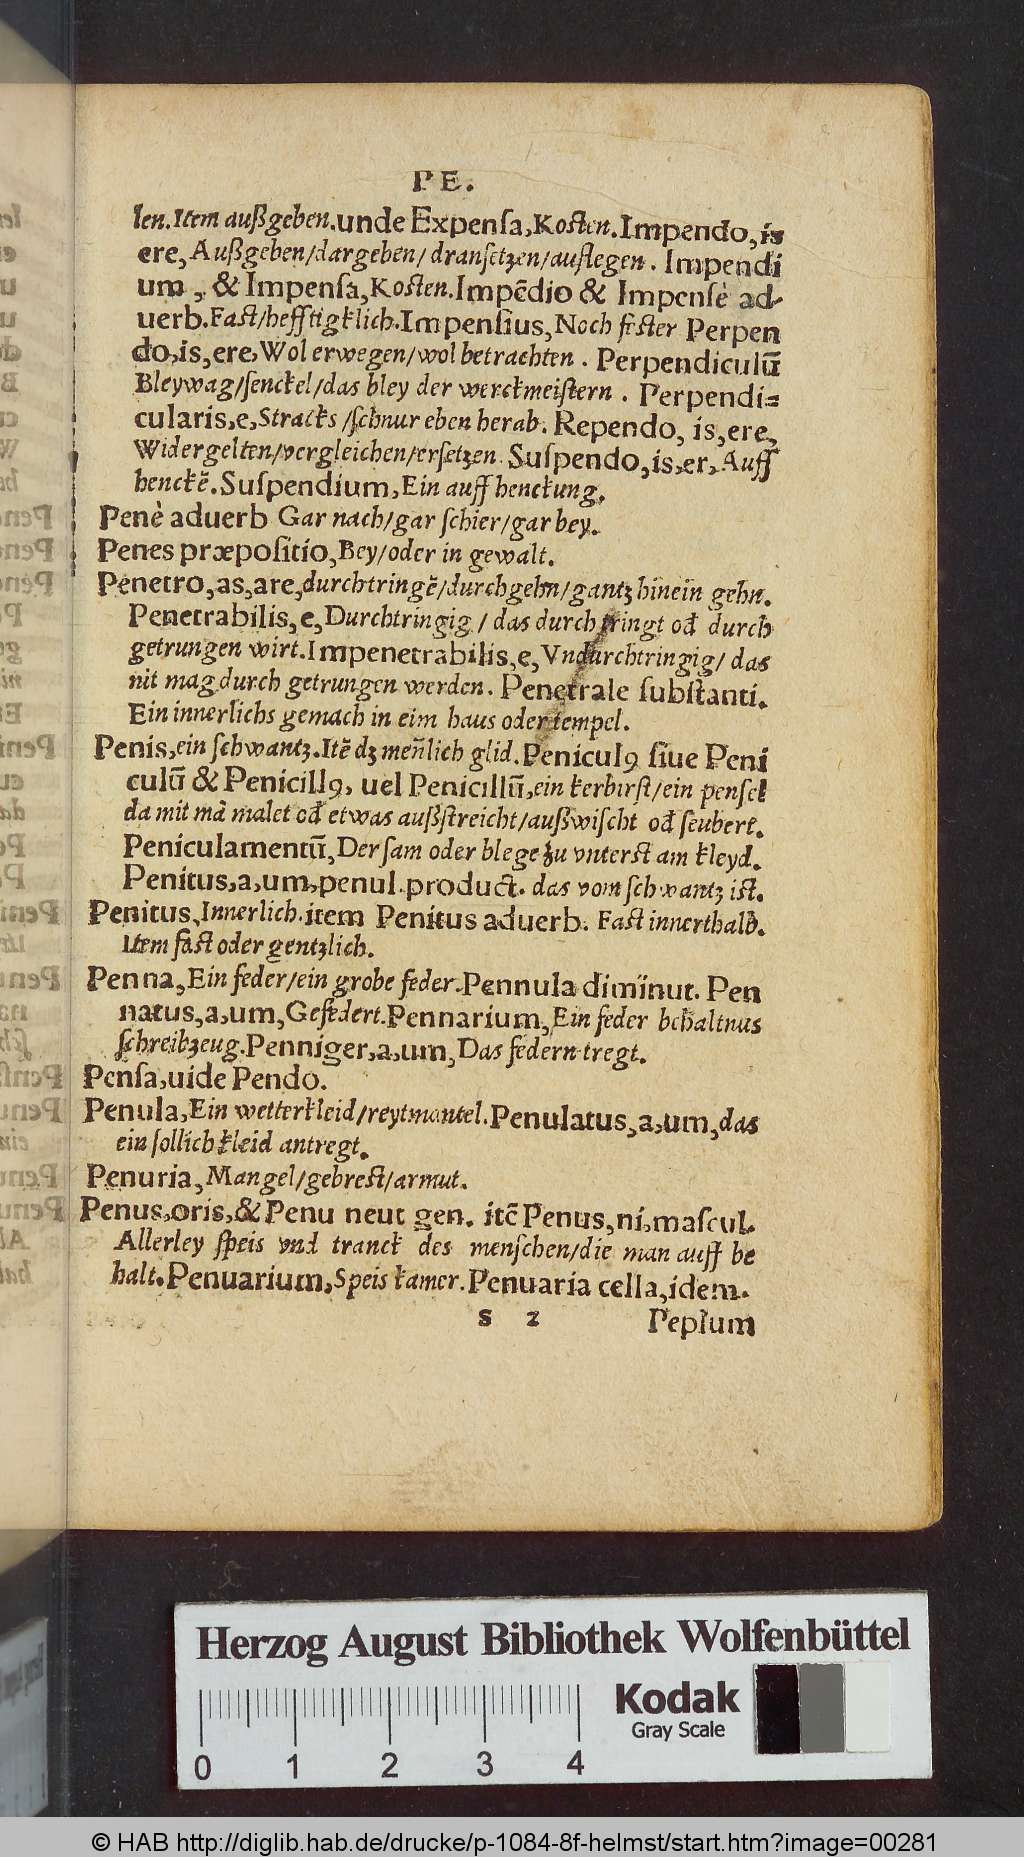 PE.
len. Item außgeben. unde Expenſa, Koſten. Impendo, is
ere, Außgeben/dargeben/ dranſetzen/auſlegen. Impendi
um, & Impenſa, Koſten. Impēdio & Impenſè ad-
uerb. Faſt/hefftigklich. Impenſius, Noch feſter Perpen
do, is, ere, Wol erwegen/wol betrachten. Perpendiculū
Bleywag/ſenckel/das bley der werckmeiſtern. Perpendi=
cularis, e, Stracks/ſchnur eben herab. Rependo, is, ere,
Widergelten/vergleichen/erſetzen. Suſpendo, is, er, Auff
henckē. Suſpendium, Ein auff henckung.
Penè aduerb Gar nach/gar ſchier/gar bey.
Penes præpoſitio, Bey/oder in gewalt.
Penetro, as, are, durchtringē/durchgehn/gantz hinein gehn.
Penetrabilis, e, Durchtringig/ das durch tringt od̄ durch
getrungen wirt. Impenetrabilis, e, Vndurchtringig/ das
nit mag durch getrungen werden. Penetrale ſubſtanti.
Ein innerlichs gemach in eim haus oder tempel.
Penis, ein ſchwantz. Itē dz men̄lich glid. Peniculꝰ ſiue Peni
culū & Penicillꝰ, uel Penicillū, ein kerbirſt/ein penſel
da mit mā malet od̄ etwas außſtreicht/außwiſcht od̄ ſeubert.
Peniculamentū, Der ſam oder blege zu vnterſt am kleyd.
Penitus, a, um, penul. product. das vom ſchwantz iſt.
Penitus, Innerlich. item Penitus aduerb. Faſt innerthalb.
Item faſt oder gentzlich.
Penna, Ein feder/ein grobe feder. Pennula diminut. Pen
natus, a, um, Gefedert. Pennarium, Ein feder behaltnus
ſchreibzeug. Penniger, a, um, Das federn tregt.
Penſa, uide Pendo.
Penula, Ein wetterkleid/reytmantel. Penulatus, a, um, das
ein ſollich kleid antregt.
Penuria, Mangel/gebreſt/armut.
Penus, oris, & Penu neut gen. itē Penus, ni, maſcul.
Allerley ſpeis vnd tranck des menſchen/die man auff be
halt. Penuarium, Speis kamer. Penuaria cella, idem.
s 2 Peplum
Herzog August Bibliothek Wolfenbüttel
Kodak
Gray Scale
0 1 2 3 4
© HAB http://diglib.hab.de/drucke/p-1084-8f-helmst/start.htm?image=00281